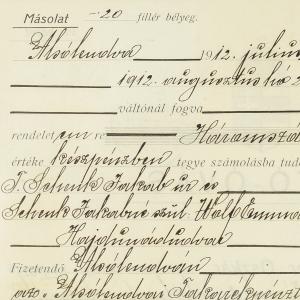 Másolat -"20 fillér bélyeg.
Alsólendva 1912. julius
1912. augusztus hó 2
váltónál fogva
rendeletem re Háromszáz
értéke készpénzben tegye számolásba tudó
T. Schenk Jakab ur és
Schenk Jakabné szül: Wolf Emma
Hajdunádudvar
Fizetendő Alsólendván
az Alsólendvai Takarékpénzt